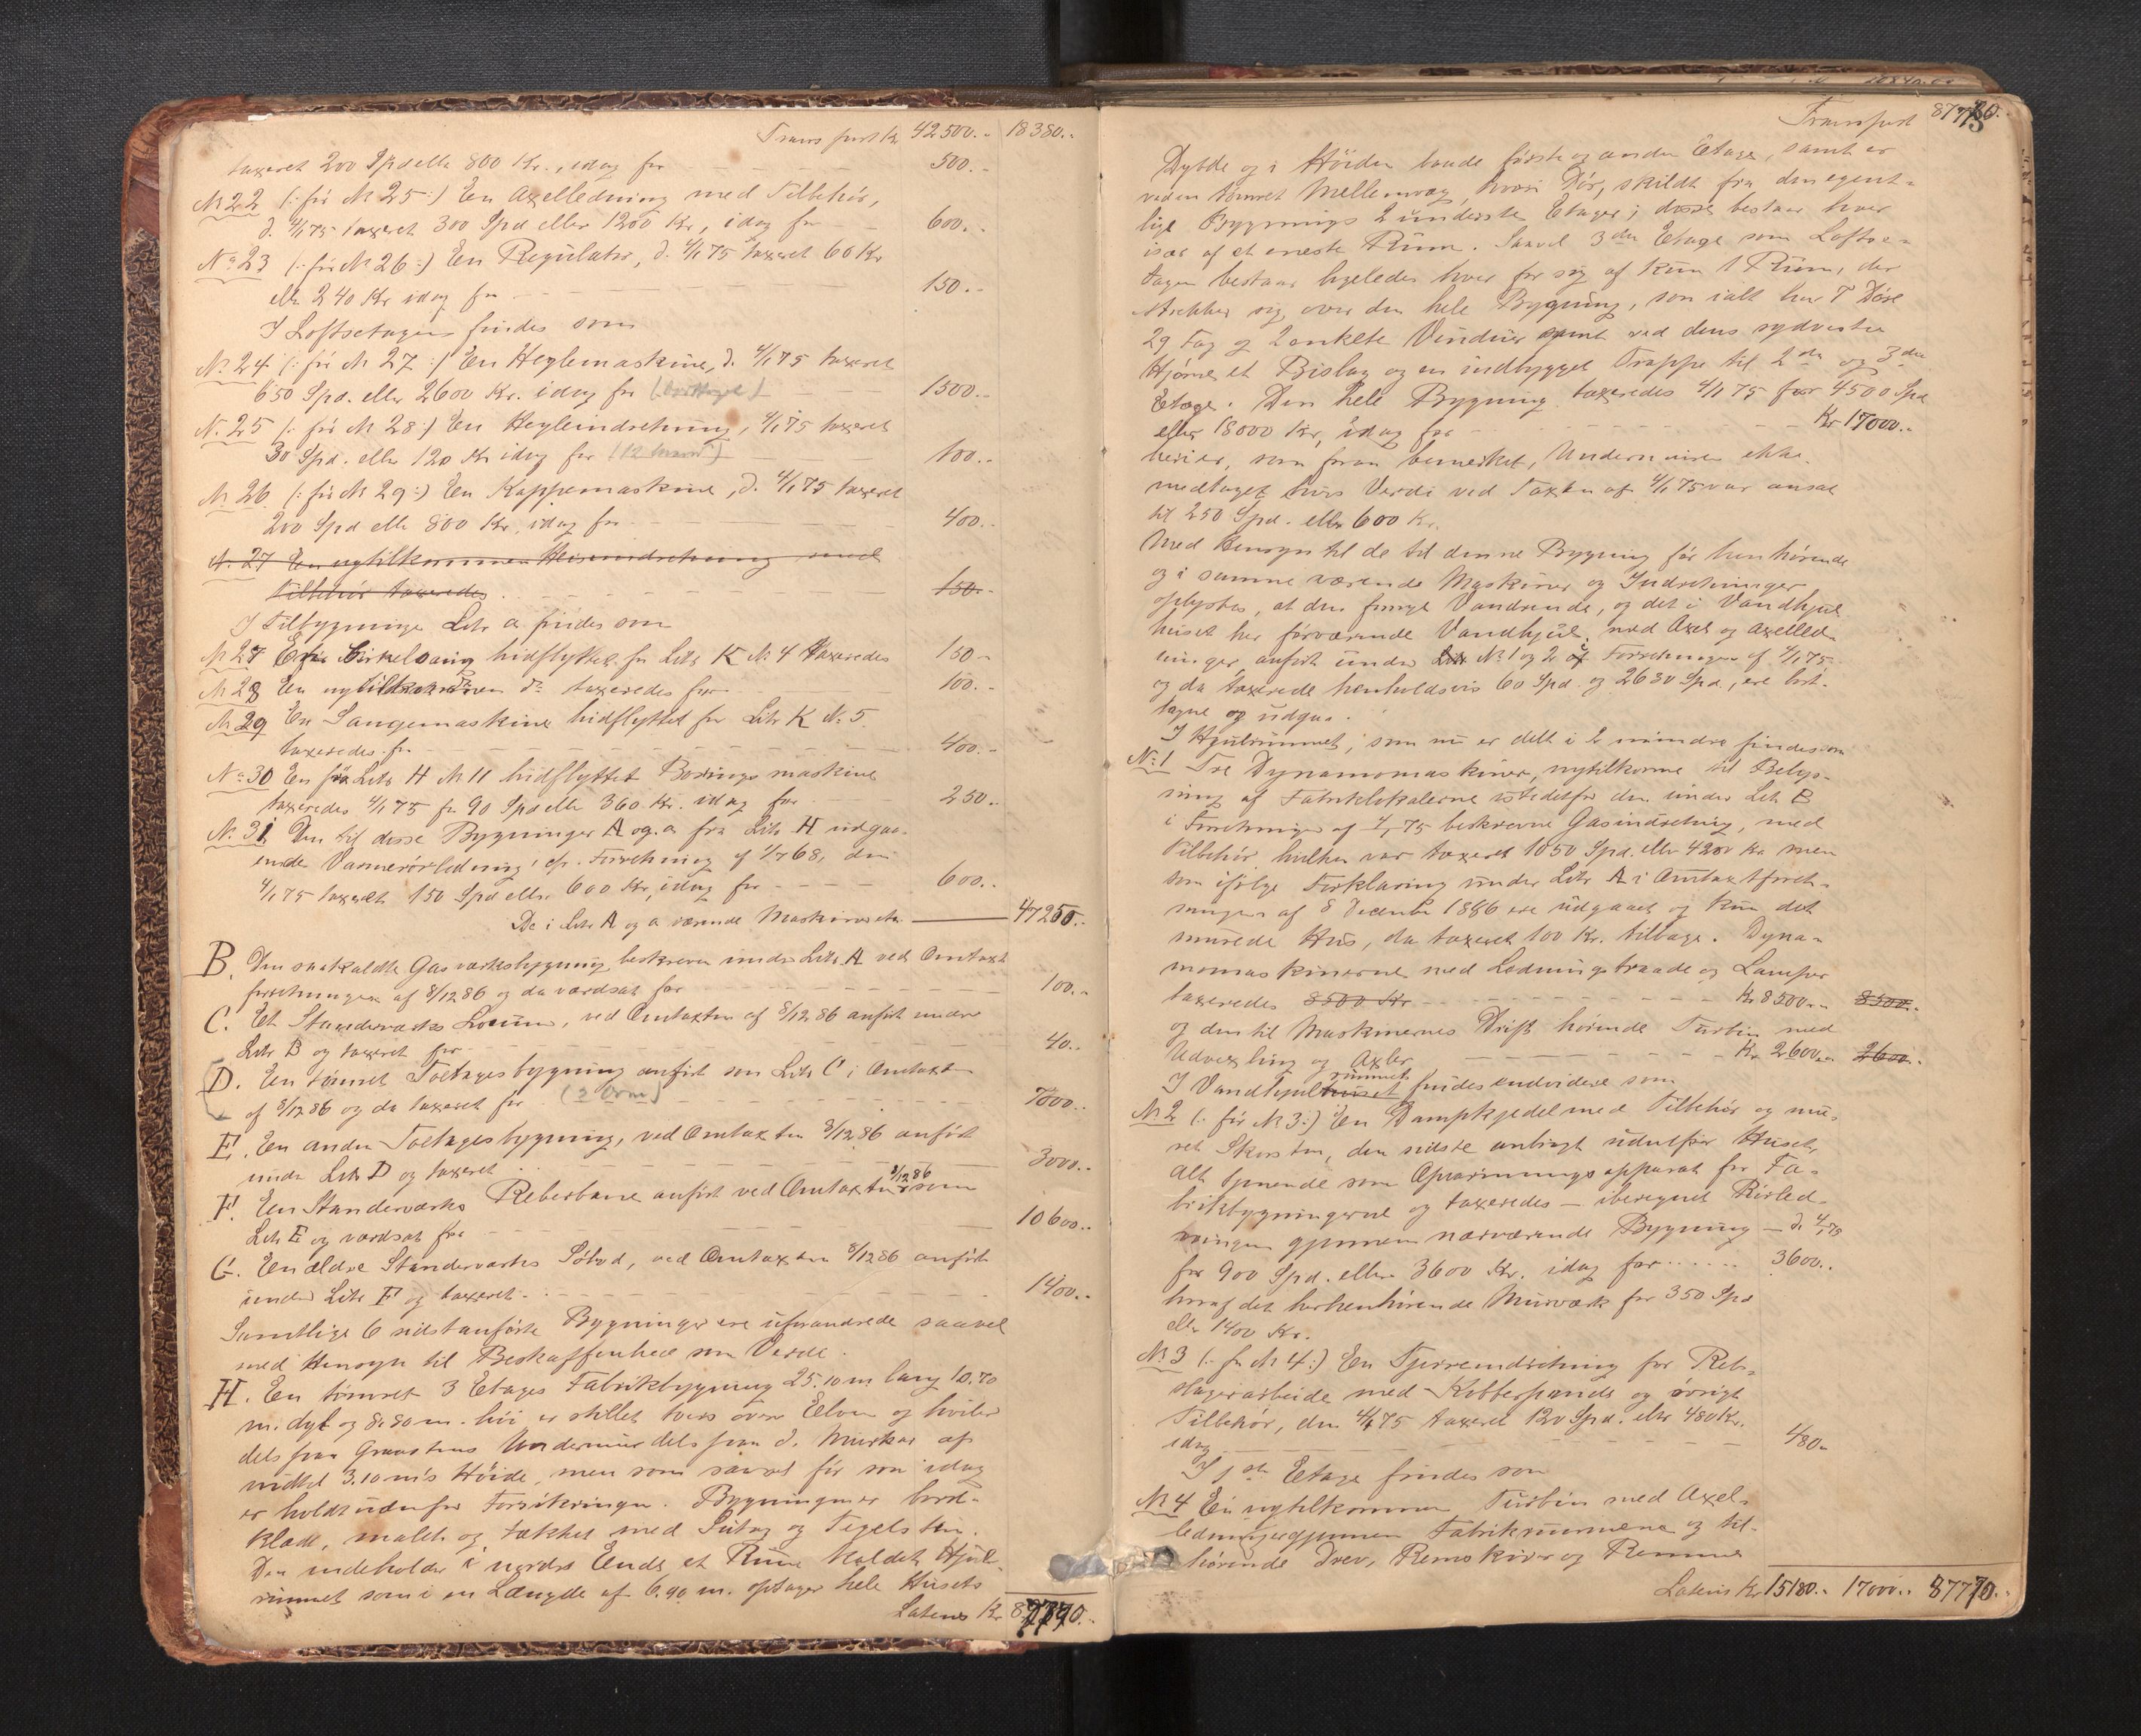 Transport Kr 42500.. 18380..
taxeret 200 Spd elle 800 Kr., idag for 500..
№ 22 (: før № 25 :) En Axelledning med Tilbehør,
d. 4/1 75 taxeret 300 Spd eller 1200 Kr, idag for 600..
№ 23 (: før № 26 :) En Regulator, d. 4/1 75 taxeret 60 Kr
elle 240 Kr idag for 150..
I Loftsetagen findes som
№ 24 (: før № 27 :) En Heglemaskine, d. 4/1 75 taxeret
650 Spd. eller 2600 Kr. idag for (borttaget) 1500..
№ 25 (: før № 28 :) En Hegleindretning, 4/1 75 taxeret
30 Spd. eller 120 Kr idag for 100..
№ 26 (: før № 29 :) En Kappemaskine, d. 4/1 75 taxeret
200 Spd elle 800 Kr. idag for 400..
№ 27 En nytilkommen Heiseindretning med
Tilbehør taxeredes 150..
I Tilbygningen Litr a findes som
№ 27 En Cirkelsaug hidflyttet fra Litr K № 4 taxeredes 150 -
№ 28 En nytilkommen do taxeredes for 100..
№ 29 En Saugemaskine hidflyttet fra Litr K № 5.
taxeredes for 400..
№ 30 En fra Litr H № 11 hidflyttet Boringsmaskine
taxeredes 4/1 75 for 90 Spd elle 360 Kr. idag for 250..
№ 31 Den til disse Bygninger A og a fra Litr H udgaa-
ende Varmerørledning, cf. Forretning af 68, den
4/1 75 taxeret 150 Spd eller 600 Kr, idag for 600..
De i Litr A og a værende Maskiner etc 47250..
B. Den saakaldte Gasværksbygning beskreven under Litr A ved Omtaxt
forretningen af 8/12 86 og da værdsat for 100..
C. Et Standerværks Locum, ved Omtaxten af 8/12 86 anført under
Litr B og taxeret for 40..
D. En tømret Toetagesbygning anført som Litr C i Omtaxten
af 8/12 86 og da taxeret for 7000..
E. En anden Toetagesbygning, ved Omtaxten 8/12 86 anført
under Litr D og taxeret 3000..
F. En Standerværks Reberbane anført ved Omtaxten 8/12 86 som
Litr E og værdsat for 10600..
G. En ældre Standerværks Søbod, ved Omtaxten 8/12 86 anført
under Litr F og taxeret 1400..
Samtlige 6 sidstanførte Bygninger ere uforandrede saavel
med Hensyn til Beskaffenhed som Værdi.
H. En tømret 3 Etages Fabrikbygning 25.10 m lang 10.70
m. dyb og 8.80 m. høi er stillet tvers over Elven og hviler
dels paa Graastens Undermur dels paa d. Murkar af
indtil 3.10 m's Høide, men som saavel før som idag
er holdt udenfor Forsikringen. Bygningen er bord-
klædt, malet og tækket med Sutag og Tegelsten.
Den indeholder i nordre Ende et Rum kaldet Hjul-
rummet som i en Længde af 6.90 m. optager hele Husets
Latus Kr 87770..
Transport 87770..
Dybde og i Høiden baade første og anden Etage, samt er
ved en tømret Mellemvæg, hvori Dør, skildt fra den egent-
lige Bygnings 2 underste Etager; disse bestaar hver
især af et eneste Rum. Saavel 3die Etage som Loftse-
tagen bestaar ligeledes hver for sig af kun 1 Rum, der
strækker sig over den hele Bygning, som ialt har 7 Døre
29 Fag og 2 enkelte Vinduer samt ved dens sydvestre
Hjørne et Bislag og en indbygget Trappe til 2den og 3die
Etage. Den hele Bygning taxeredes 4/1 75 for 4500 Spd
eller 18000 Kr, idag for Kr 17000..
heri er, som foran bemerket, Undermuren ikke
medtaget hvis Verdi ved Taxten af 4/1 75 var ansat
til 250 Spd. eller 600 Kr.
Med Hensyn til de til denne Bygning før henhørende
og i samme værende Maskiner og Indretninger
oplystes, at den forrige Vandrende, og det i Vandhjul
huset her forværende Vandhjul, med Axel og Axelled-
ninger, anført under № 1 og 2 af Forretningen af 4/1 75
og da taxerede henholdsvis 60 Spd. og 2630 Spd., ere bort-
tagne og udgaa.
I Hjulrummet, som nu er delt i 2 mindre findes som
№ 1 Tre Dynamomaskiner, nytilkomne til Belys-
ning af Fabriklokalerne istedetfor den under Litr B
i Forretningen af 4/1 75 beskrevne Gasindretning, med
Tilbehør, hvilken var taxeret 1050 Spd. eller 4200 Kr men
som ifølge Forklaring under Litr A i Omtaxtforret-
ningen af 8 December 1886 ere udgaaet og kun det
murede Hus, da taxeret 100 Kr. tilbage. Dyna-
momaskinerne med Ledningstraade og Lamper
taxeredes 8500 Kr Kr 8500.. 8500..
og den til Maskinernes Drift hørende Turbin med
Udvexling og Axler Kr 2600.. 2600..
I Vandhjulrummet findes endvidere som
№ 2 (: før № 3 :) En Dampkjedel med Tilbehør og mu-
ret Skorsten, den sidste anbragt udenfor Huset
alt tjenende som Opvarmningsapparat for Fa-
brikbygningerne og taxeredes – iberegnet Rørled-
ningen gjennem nærværende Bygning – d. 4/1 75
for 900 Spd. eller 3600 Kr. idag for 3600..
hvoraf det herhenhørende Murværk for 350 Spd
eller 1400 Kr.
№ 3 (: før № 4 :) En Tjæreindretning for Reb-
slagerarbeide med Kobberpande og øvrigt
Tilbehør, den 4/1 75 taxeret 120 Spd. eller 480 Kr.
idag 480..
I 1ste Etage findes som
№ 4 En nytilkommen Turbin med Axel-
ledninger gjennem Fabrikrummene og til-
hørende Drev, Remskiver og Remme
Latus Kr 15180.. 17000.. 87770..